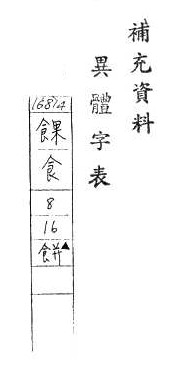 補充資料
異體字表
16814
餜
食
8
16
餅▲